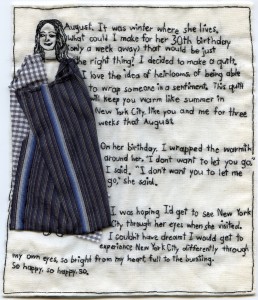 August. It was winter where she lives.
What could I make for her 30th birthday
(only a week away) that would be just
the right thing? I decided to make a quilt.
I love the idea of heirlooms, of being able
to wrap someone in a sentiment. This quilt
will keep you warm like summer in
New York City, like you and me for three
weeks that August.
On her birthday, I wrapped the warmth
around her. "I don't want to let you go,"
I said. "I don't want you to let me
go," she said.
I was hoping I'd get to see New York
City through her eyes when she visited.
I couldn't have dreamt I would get to
experience New York City differently through
my own eyes, so bright from my heart full to the bursting.
So happy, so happy, so.